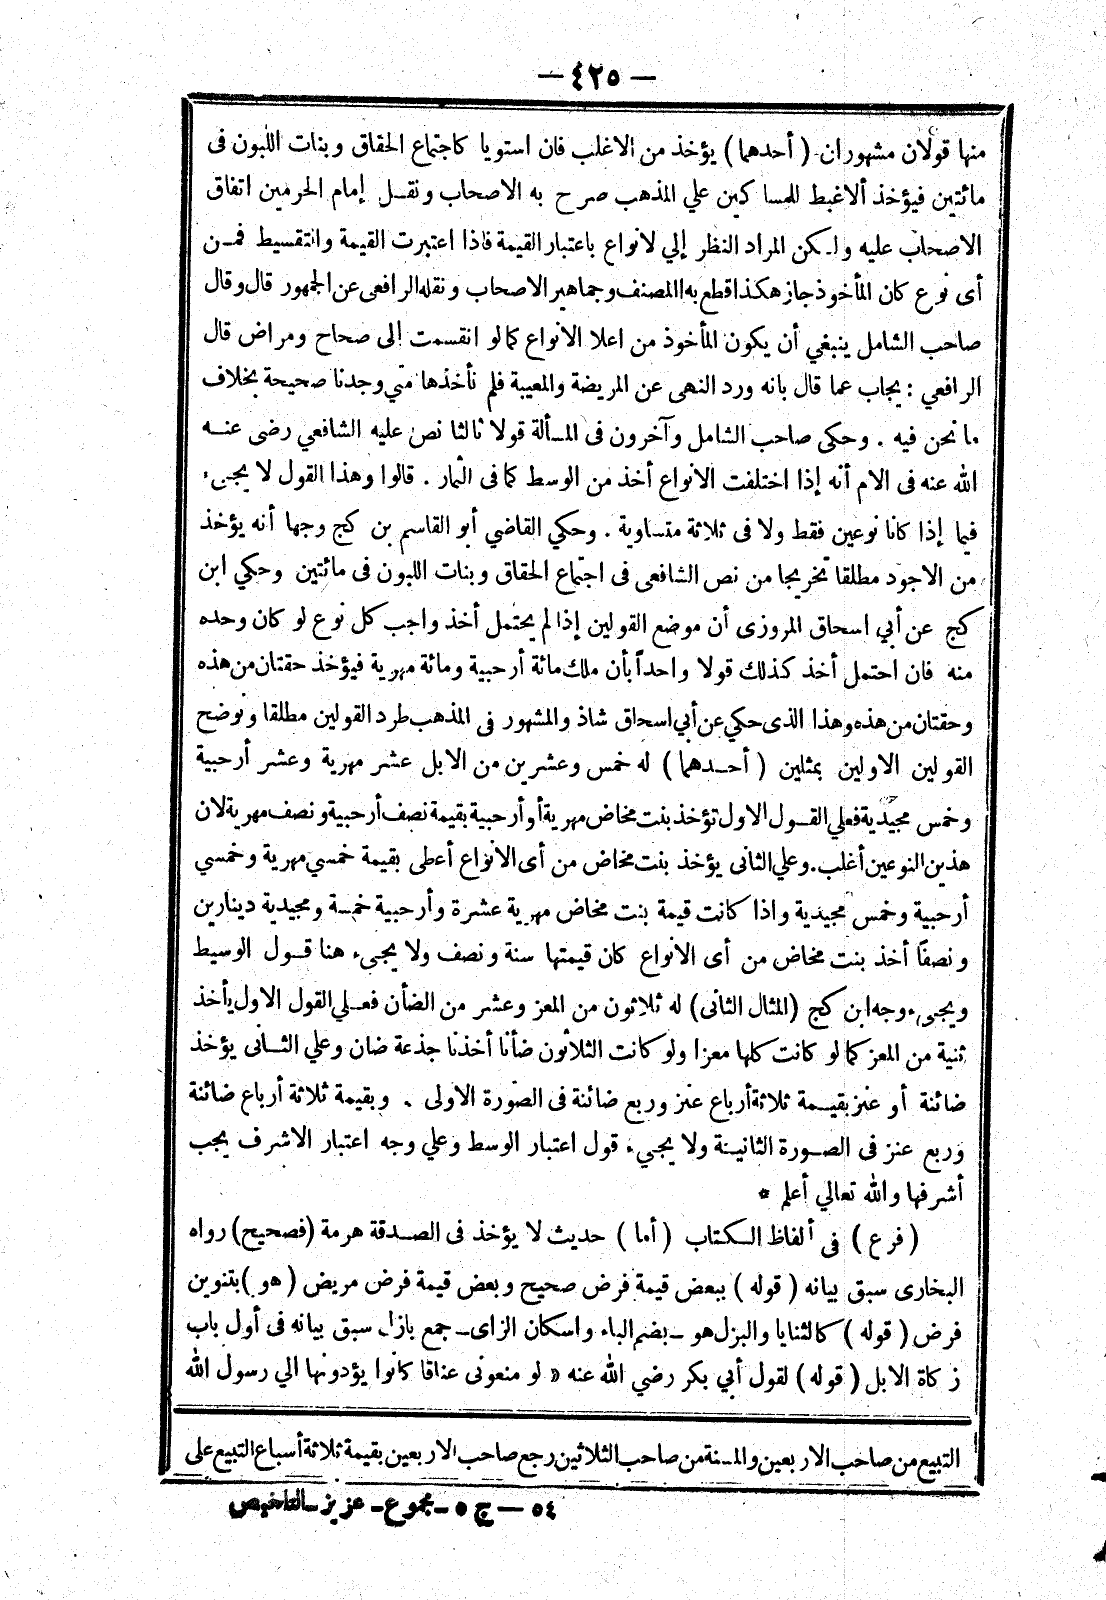 — ٤٢٥ —
منها قولان مشهوران ( أحدهما ) يؤخذ من الاغلب فان استويا كاجتماع الحقاق وبنات اللبون فى
مائتين فيؤخذ ألاغبط للمساكين علي المذهب صرح به الاصحاب ونقل إمام الحرمين اتفاق
الاصحاب عليه ولكن المراد النظر إلي لانواع باعتبار القيمة فاذا اعتبرت القيمة وانتقسيط فمن
أى نوع كان المأخوذ جاز هكذا قطع به االمصنف وجماهير الاصحاب ونقله الرافعى عن الجمهور قال وقال
صاحب الشامل ينبغي أن يكون المأخوذ من اعلا الانواع كما لو انقسمت إلى صحاح ومراض قال
الرافعي : يجاب عما قال بانه ورد النهى عن المريضة والمعيبة فلم نأخذها متي وجدنا صحيحة بخلاف
ما نحن فيه . وحكى صاحب الشامل وآخرون فى المسألة قولا ثالثا نص عليه الشافعي رضى عنه
الله عنه فى الام أنه إذا اختلفت الانواع أخذ من الوسط كما فى الثمار . قالوا وهذا القول لا يجىء
فيما إذا كانا نوعين فقط ولا فى ثلاثة متساوية . وحكي القاضي أبو القاسم بن كج وجها أنه يؤخذ
من الاجود مطلقا تخريجا من نص الشافعى فى اجتماع الحقاق وبنات اللبون فى مائتين وحكي ابن
كج عن أبي اسحاق المروزى أن موضع القولين إذا لم يحتمل أخذ واجب كل نوع لو كان وحده
منه فان احتمل أخذ كذلك قولا واحداً بأن ملك مائة أرحبية ومائة مهرية فيؤخذ حقتان من هذه
وحقتان من هذه وهذا الذى حكي عن أبي اسحاق شاذ والمشهور فى المذهب طرد القولين مطلقا ونوضح
القولين الاولين بمثلين ( أحدهما ) له خمس وعشرين من الابل عشر مهرية وعشر أرحبية
وخمس مجيدية فعلي القول الاول تؤخذ بنت مخاض مهرية أو أرحبية بقيمة نصف أرحبية ونصف مهرية لان
هذين النوعين أغلب . وعلي الثانى يؤخذ بنت مخاض من أى الانواع أعطى بقيمة خمسي مهرية وخمسي
أرحبية وخمس مجيدية واذا كانت قيمة بنت مخاض مهرية عشرة وأرحبية خمسة ومجيدية دينارين
ونصفاً أخذ بنت مخاض من أى الانواع كان قيمتها ستة ونصف ولا يجىء هنا قول الوسيط
ويجىء وجه ابن كج (المثال الثانى) له ثلاثون من المعز وعشر من الضأن فعلي القول الاول يأخذ
ثنية من المعز كما لو كانت كلها معزا ولو كانت الثلاثون ضأنا أخذنا جذعة ضان وعلي الثانى يؤخذ
ضائنة أو عنز بقيمة ثلاثة أرباع عنز وربع ضائنة فى الصورة الاولى . وبقيمة ثلاثة أرباع ضائنة
وربع عنز فى الصورة الثانية ولا يجيء قول اعتبار الوسط وعلي وجه اعتبار الاشرف يجب
أشرفها والله تعالي أعلم *
( فرع ) فى ألفاظ الكتاب ( أما ) حديث لا يؤخذ فى الصدقة هرمة (فصحيح) رواه
البخارى سبق بيانه ( قوله ) ببعض قيمة فرض صحيح وبعض قيمة فرض مريض ( هو ) بتنوين
فرض ( قوله ) كالثنايا والبزل هو ـ بضم الباء واسكان الزاى ـ جمع بازل سبق بيانه فى أول باب
زكاة الابل ( قوله ) لقول أبي بكر رضي الله عنه « لو منعونى عناقا كانوا يؤدونها الي رسول الله
التبيع من صاحب الاربعين والمسنة من صاحب الثلاثين رجع صاحب الاربعين بقيمة ثلاثة أسباع التبيع على
٥٤ — ج ٥ ـ مجموع ـ عزيز ـ التلخيص